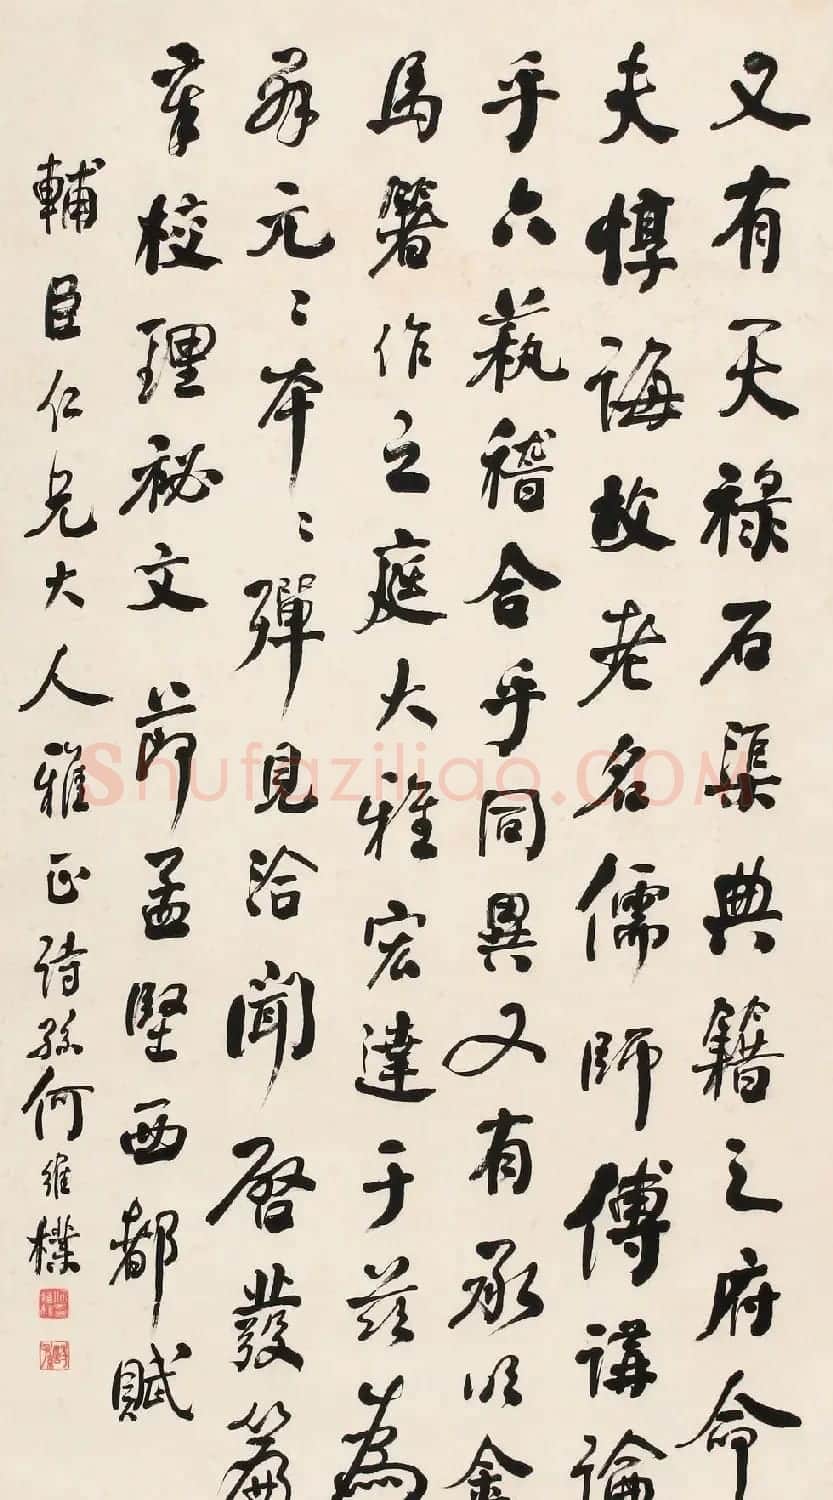 又有天祿石渠典籍之府命
夫惇誨故老名儒師傅講論
乎六蓺稽合乎同異又有承明金
馬箸作之庭大雅宏達于茲為
羣元〻本〻彈見洽聞啓發篇
章校理祕文 節孟堅西都賦
輔臣仁兄大人雅正 詩孫何維樸
Shufaziliao.COM